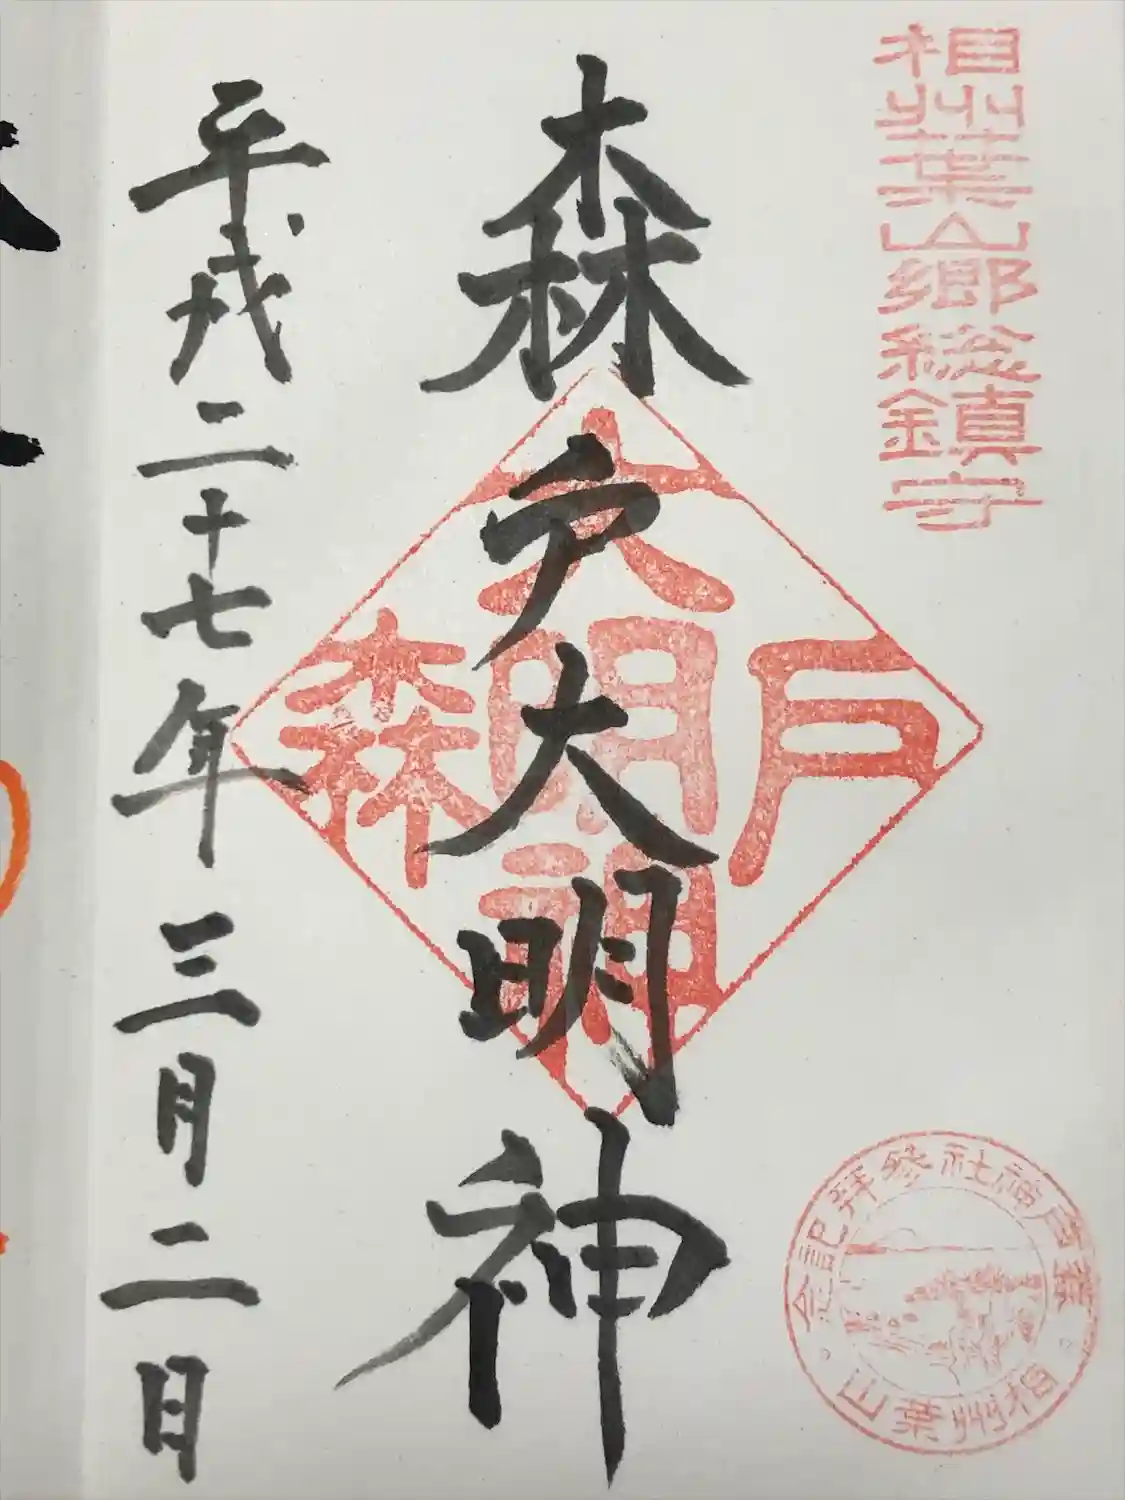 相州葉山郷総鎮守
森戸大明神
大
森明戸
神
森戸神社参拝記念
相州葉山
平成二十七年三月二日